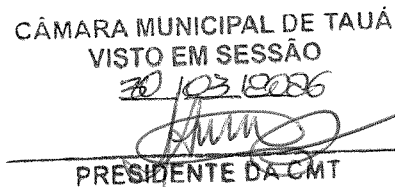 CÂMARA MUNICIPAL DE TAUÁ
VISTO EM SESSÃO
30/03/
PRESIDENTE DA CMT